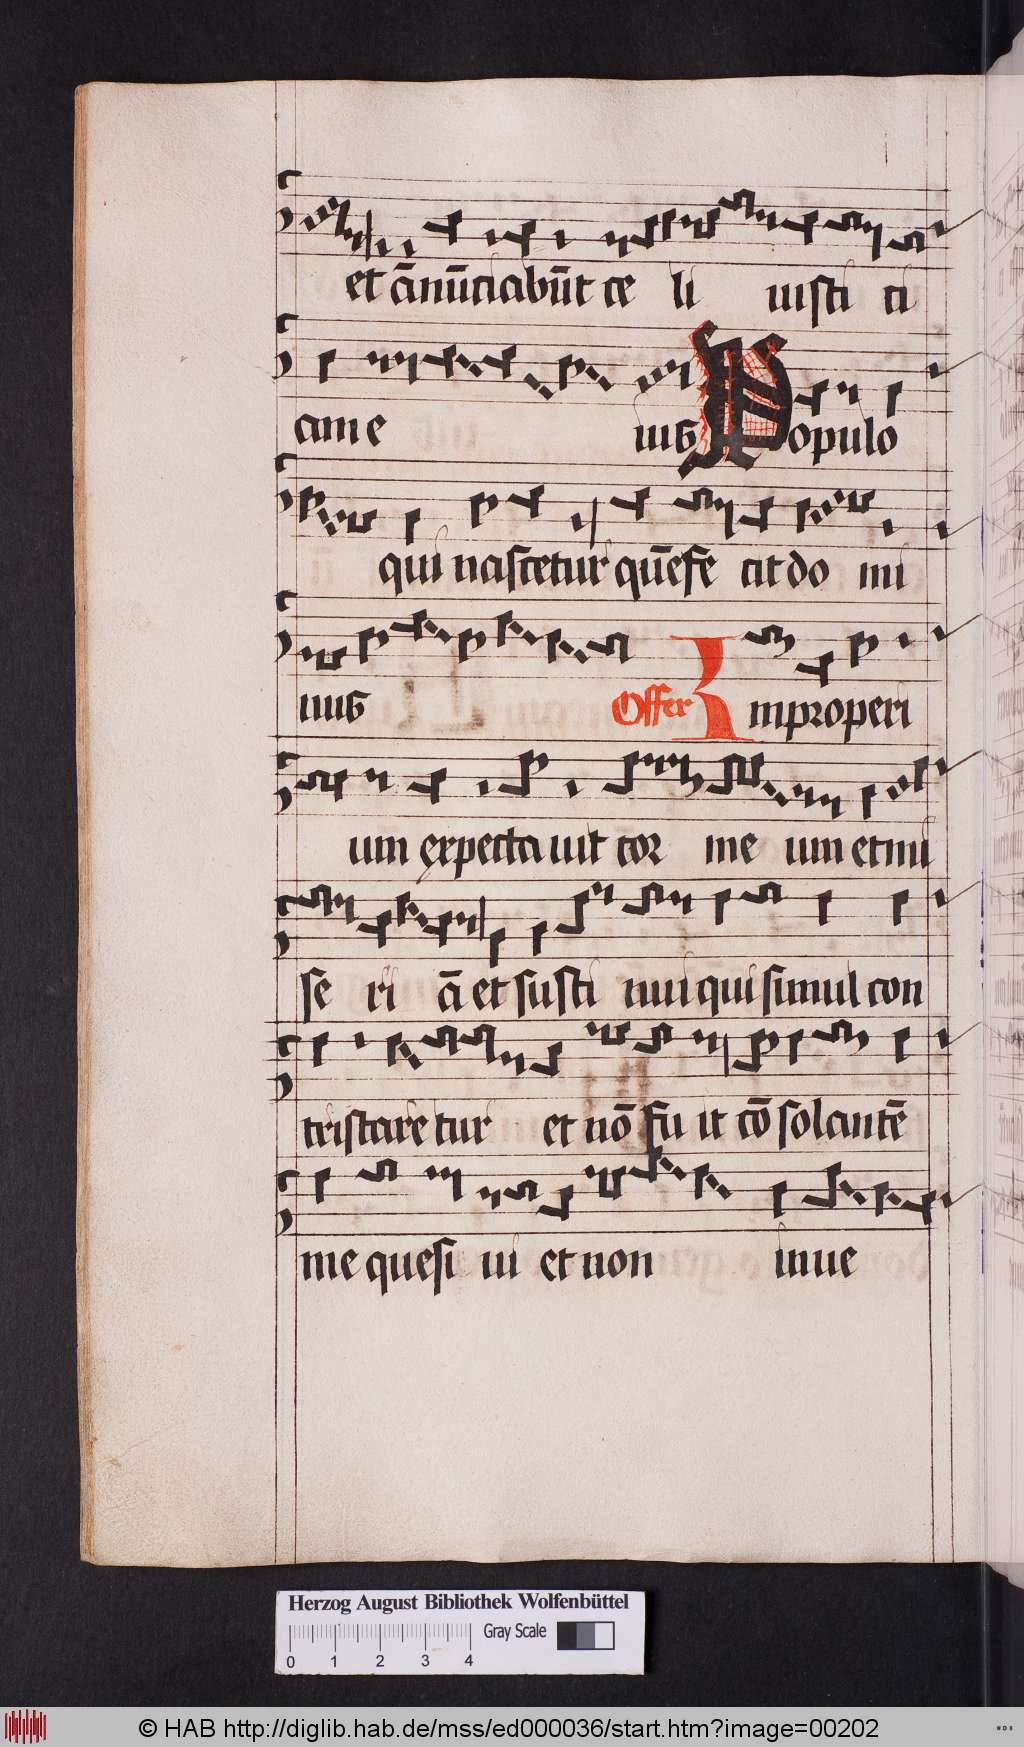 et ān̄uciabūt ce li iusti ti
am e ius Populo
qui nascetur quē fe cit do mi
nus Offer Improperi
um expecta uit cor me um et mi
se ri ā et susti nui qui simul con
tristare tur et nō fu it cō solantē
me quesi ui et non inue
Herzog August Bibliothek Wolfenbüttel
0 1 2 3 4 Gray Scale
© HAB http://diglib.hab.de/mss/ed000036/start.htm?image=00202